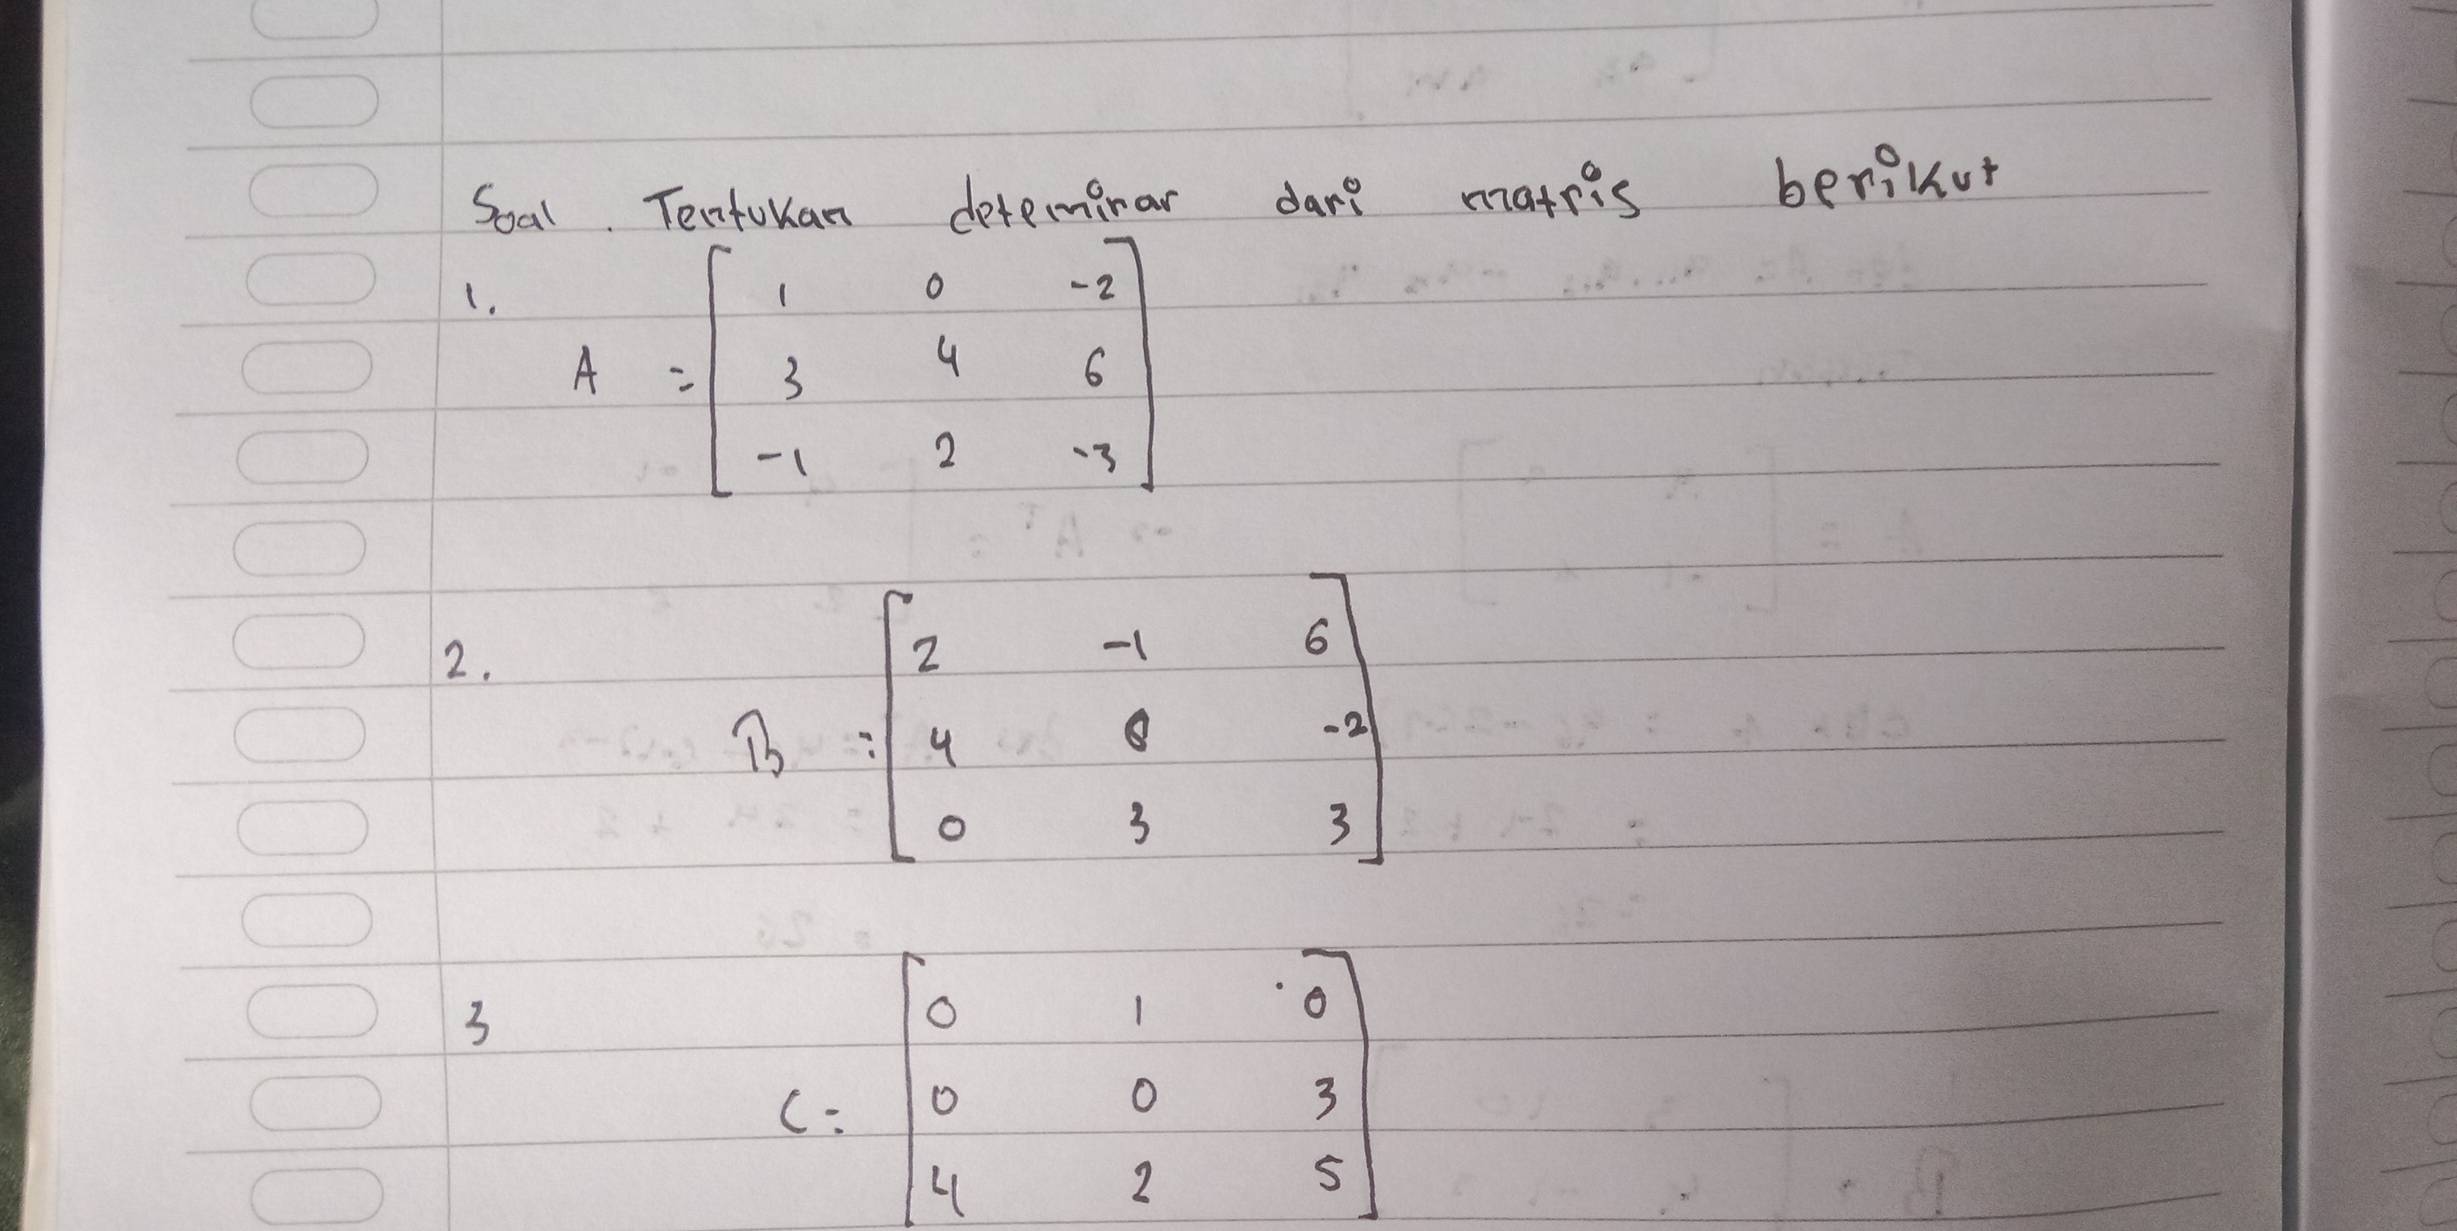 Soal . Tentukan deteminar dari matris berikut
1.
1 0 -2
A = 3 4 6
-1 2 -3
2.
2 -1 6
B = 4 -2
0 3 3
3
0 1 0
C = 0 0 3
4 2 5